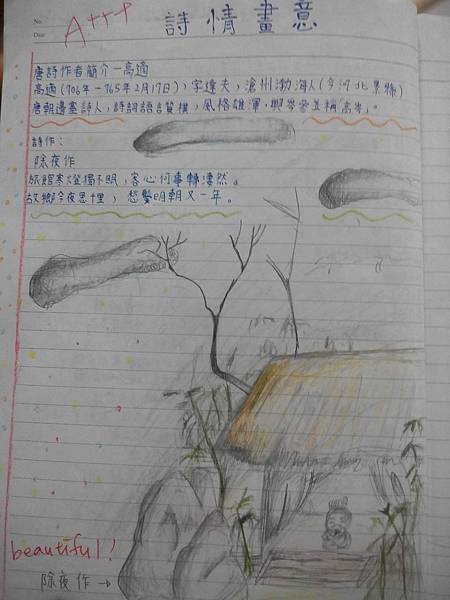 No.
Date
A+++
詩情畫意
唐詩作者簡介-高適
高適(706年-765年2月17日)，字達夫，滄州渤海人(今河北景縣)
唐朝邊塞詩人，詩詞語言質樸，風格雄渾，與岑參並稱「高岑」。
詩作：
除夜作
旅館寒燈獨不眠，客心何事轉淒然。
故鄉今夜思千里，愁鬢明朝又一年。
beautiful!
除夜作→